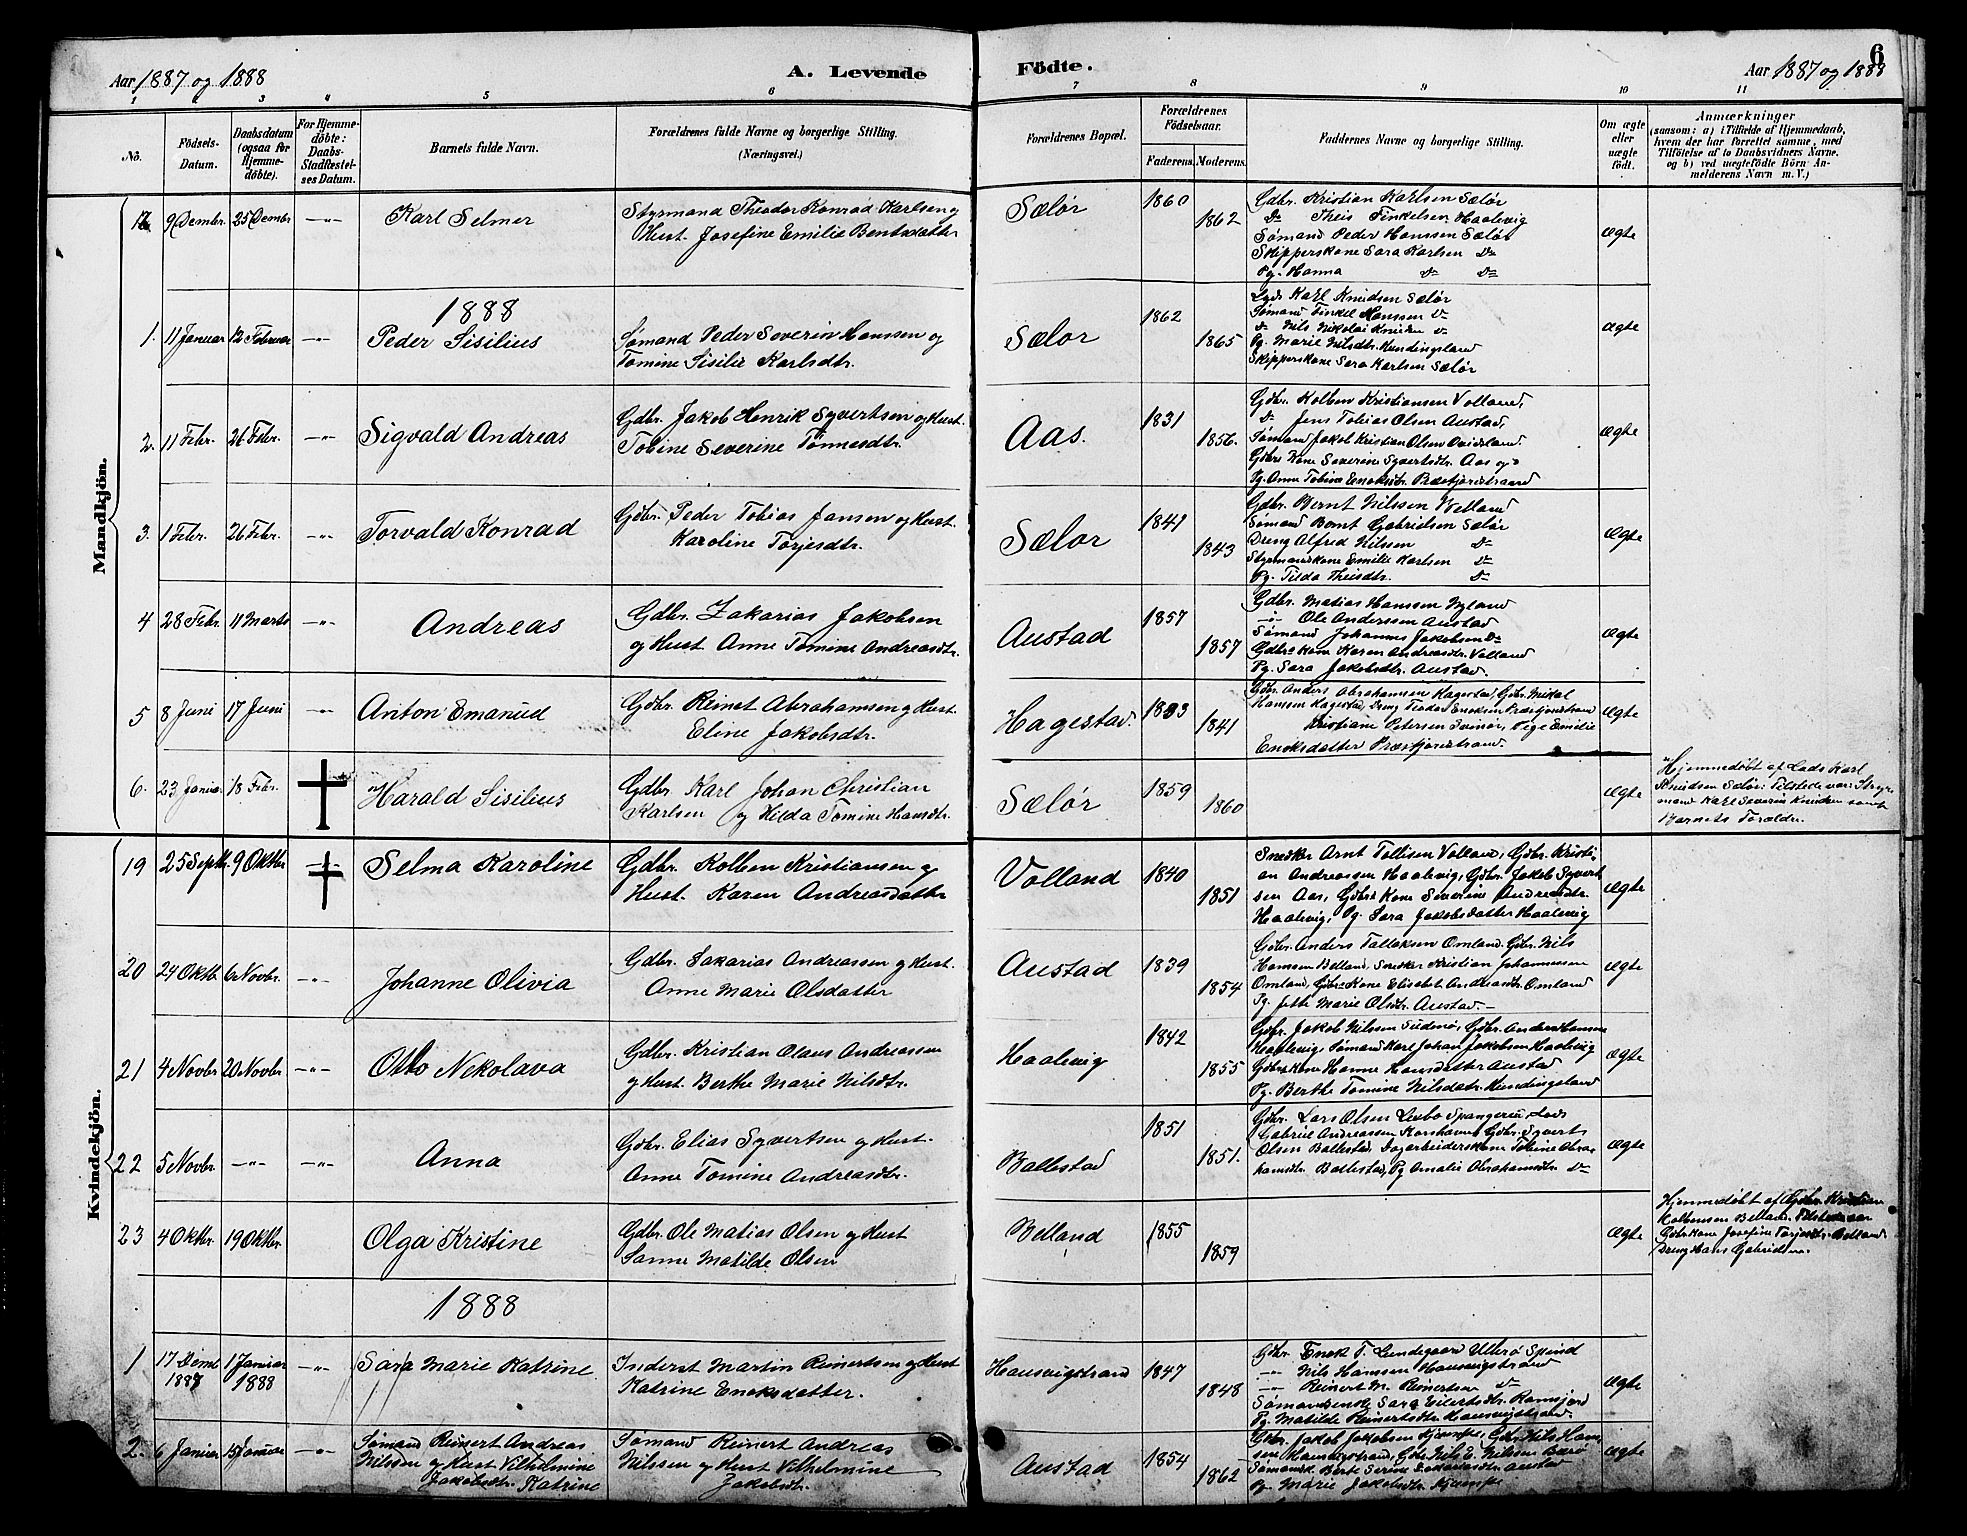 Aar 1887 og 1888
A. Levende
Födte.
Aar 1887 og 1888
6
1 2 3 4 5 6 7 8 9 10 11
No.
Födsels-
Datum.
Daabsdatum
(ogsaa for
Hjemme-
döbte).
For Hjemme-
döbte:
Daabs-
Stadfæstel-
ses Datum.
Barnets fulde Navn.
Forældrenes fulde Navne og borgerlige Stilling.
(Næringsvei.)
Forældrenes Bopæl.
Forældrenes
Födselsaar.
Faderens. Moderens.
Faddernes Navne og borgerlige Stilling.
Om ægte
eller
uægte
födt.
Anmærkninger
(saasom: a) i Tilfælde af Hjemmedaab,
hvem der har forrettet samme, med
Tilföielse af to Daabsvidners Navne.
og b) ved uægtefödte Börn An-
melderens Navn m. V.)
Mandkjön.
9 Dembr. 25 Dembr. -"- Karl Selmer
Styrmand Theodor Konrad Karlsen og
Hust. Josefine Emilie Bentsdatter
Sælør 1860 1862
Gdbr. Kristian Karlsen Sælør
Do Theis Finkelsen Haalevig
Sømand Peder Hanssen Sælør
Skipperskone Sara Karlsen Do
Pg. Hanna Do Do
Ægte
1888
1. 11 Januar 12 Februar -"- Peder Sisilius
Sømand Peder Severin Hanssen og
Tomine Sisilie Karlsdtr.
Sælør 1862 1865
Lods Karl Knudsen Sælør
Sømand Finkel Hanssen Do
Do Nils Nikolai Knudsen Do
Pg. Marie Nilsdtr. Hundingsland
Skipperskone Sara Karlsen Sælør
Ægte
2. 11 Febr. 26 Febr. -"- Sigvald Andreas
Gdbr. Jakob Henrik Syvertsen og Hust.
Tobine Severine Tønnesdtr.
Aas. 1831 1856.
Gdbr. Kolben Kristiansen Volland,
Do Jens Tobias Olsen Austad,
Sømand Jakob Kristian Olsen
Gdbrs Kone Severine Syvertsdtr. Aas og
Pg. Anne Tobine Eneksdtr. Præstjordstrand
Ægte
3. 1 Febr. 26 Febr. -"- Torvald Konrad
Gdbr. Peder Tobias Jansen og Hust.
Karoline Torjesdtr.
Sælør 1841 1843
Gdbr. Bernt Nilssen Welland
Sømand Bernt Gabrielsen Sælør
Dreng Alfred Nilssen Do
Styrmandskone Emilie Karlsen Do
Pg. Tilda Theisdtr. Do
Ægte
4 28 Febr. 11 Marts -"- Andreas
Gdbr. Zakarias Jakobsen
og Hust Anne Tomine Andreasdtr.
Austad 1857 1857
Gdbr. Matias Hanssen Nyland
-"- Ole Anderssen Austad
Sømand Johannes Jakobsen Do
Gdbrs kone Karen Andreasdtr. Volland
Pg. Sara Jakobsdtr. Austad.
Ægte
5 8 Juni 17 Juni -"- Anton Emanuel
Gdbr. Reinet Abrahamsen og Hust.
Eline Jakobsdtr.
Hagestad. 1833 1841
Gdbr. Anders Abrahamsen Hagestad, Gdbr. Mikal
Hanssen Hagestad, Dreng Teodor Eneksen Præstjordstrand
Kristiane Petersen Svinør, Pige Emilie
Eneksdatter Præstjordstrand.
Ægte
6. 23 Januar 18 Febr. Harald Sisilius
Gdbr. Karl Johan Christian
Karlsen og Hilda Tomine Hansdtr.
Sælør 1859 1860
Ægte
Hjemmedøbt af Lods Karl
Knudsen Sælør: Tilstede var: Styr-
mand Karl Severin Knudsen samt
Barnets Forældre.
Kvindekjön.
19 25 Septbr. 9 Oktbr. -"- Selma Karoline
Gdbr. Kolben Kristiansen og
Hust. Karen Andreasdatter
Volland 1840 1851
Snedker Arnt Tollisen Volland, Gdbr. Kristi-
an Andreassen Haalevig, Gdbr. Jakob Syvert
sen Aas, Gdbrs Kone Severine Andreasdtr.
Haalevig, Pg. Sara Jakobsdatter Haalevig
Ægte
20 24 Oktb. 6 Novbr. -"- Johanne Olivia
Gdbr. Sakarias Andreassen og Hust.
Anne Marie Olsdatter
Austad 1839 1854
Gdbr. Anders Tallaksen Omland. Gdbr. Nils
Hanssen Belland, Snedker Kristian Johannessen
Omland, Gdbrs Kone Elisabet Andreasdtr. Omland
Pg. Jette Marie Olsdtr. Austad.—
Ægte
21 4 Novbr 20 Novbr. -"- Otto Nekolava
Gdbr. Kristian Olaus Andreassen
og Hust. Berthe Marie Nilsdtr.
Haalevig 1842 1855
Gdbr. Jakob Nilssen, Gdbr. Anders Hanssen
Haalevig, Sømand Karl Johan Jakobsen Haalevig
Gdbrs kone Hanne Hansdatter Austad
Pg. Berthe Tomine Nilsdatr. Hundingsland
Ægte
22 5 Novbr. -"- -"- Anna
Gdbr. Elias Syvertsen og Hust.
Anne Tomine Andreasdtr.
Ballestad 1851 1851.
Gdbr. Lars Olsen Spangereid, Lods
Gabriel Andreassen Korshavn, Gdbr. Syvert
Olsen Ballestad, Dagarbeiderskone Tobine Abra-
hamsdtr. Ballestad, Pg Amalie Abrahamsdtr. Do
Ægte
23 4 Oktbr. 19 Oktbr. Olga Kristine
Gdbr. Ole Matias Olsen og Hust
Sanne Matilde Olsen
Belland 1855 1859
Ægte
Hjemmedøbt af Gdbr. Kristian
Kolbensen Belland. Tilstede var
Gdbrs kone Josefine Torjesdtr. Belland
Dreng Hans Gabrielsen.
1888
1 17 Dembr 1887 1 Januar 1888 -"- Sara Marie Katrine
Inderst Martin Reinertsen og Hust
Katrine Eneksdatter.
Hausvigstrand 1847 1848
Gdbr. Enok T. Lundegaard Ullerø Spind
-"- Nils Hanssen Hausvigstrand
-"- Reinert M. Reinertsen Do
Sømandsenke Sara Eilertsdtr. Ramsfjord
Pg. Matilde Reinertsdtr. Hausvigstrand.
Ægte
2. 6 Januar 15 Januar -"- Sømand Reinert Andreas
Nilssen og Hust Vilhelmine
Jakobsdtr. Katrine
Sømand Reinert Andreas
Nilssen og Hust Vilhelmine
Jakobsdtr.
Austad 1854 1862
Gdbr. Jakob Jakobsen, Gdbr. Nils Hans-
sen Hausvigstrand, Gdbr. Nils E. Nilssen
Sømandsk. Berte Serine Sakariasdtr Austad
Pg. Marie Jakobsdtr.
Ægte